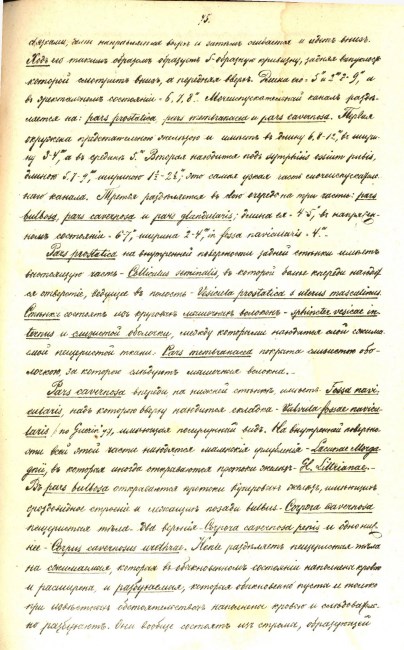 75.
связками, затем направляется вверх и затем сгибается и идет вниз.
Ходъ его таким образом образует S-образную кривизну, задняя выпуклость
которой смотрит вниз, а передняя вверх. Длина его - 5" и 2'" 7-9", и
в эректильном состоянии - 6, 7, 8". Мочеиспускательный канал разде-
ляется на: pars prostatica, pars membranacea и pars cavernosa. Первая
окружена предстательною железою и имеет в длину 6, 8-12'", в шири-
ну 3-4'", а в средине 5'". Вторая находится под symphisis ossium pubis,
длиною 5, 7-9'", шириною Это самая узкая часть мочеиспускатель-
наго канала. Третья разделяется в свою очередь на три части: pars
bulbosa, pars cavernosa и pars glandularis; длина ея - 4-5", в напряжен-
ном состоянии - 6-7", ширина 2-4'", in fossa navicularis - 4'".
Pars prostatica на внутренней поверхности задней стенки имеет
выстоящую часть - Colliculus seminalis, в которой более кпереди находит-
ся отверстие, ведущее в полость - Vesicula prostatica s. uterus masculinus.
Стенки состоят из круговых мышечных волокон - sphincter vesicae in-
ternus и слизистой оболочки, между которыми находится слой сжима-
емой пещеристой ткани. Pars membranacea покрыта слизистою обо-
лочкою за которою следуют мышечные волокна. -
Pars cavernosa впереди на нижней стенке, имеет Fossa navi-
cularis, над которою вверху находится складка - Valvula fossae navicu-
laris /по Guérin'у/, имеющая полулунный вид. На внутренней поверхно-
сти всей этой части находятся маленькие углубления - Lacunae Morga-
gnii, в которыя иногда открываются протоки желез - Gl. Littrianae.
В pars bulbosa открываются протоки Куперовых желез, имеющих
гроздовидное строение и лежащих позади bulbus. Corpora cavernosa
пещеристыя тела. Два верхния - Corpora cavernosa penis и одно ниж-
нее - Corpus cavernosum urethrae. разделяет пещеристыя тела
на сжимаемыя, которыя в обыкновенном состоянии наполнены кровью
и расширена, и разбухаемыя, которыя обыкновенно пусты и только
при известных обстоятельствах наполнены кровью и следователь-
но разбухают. Они вообще состоят из стромы, образующей